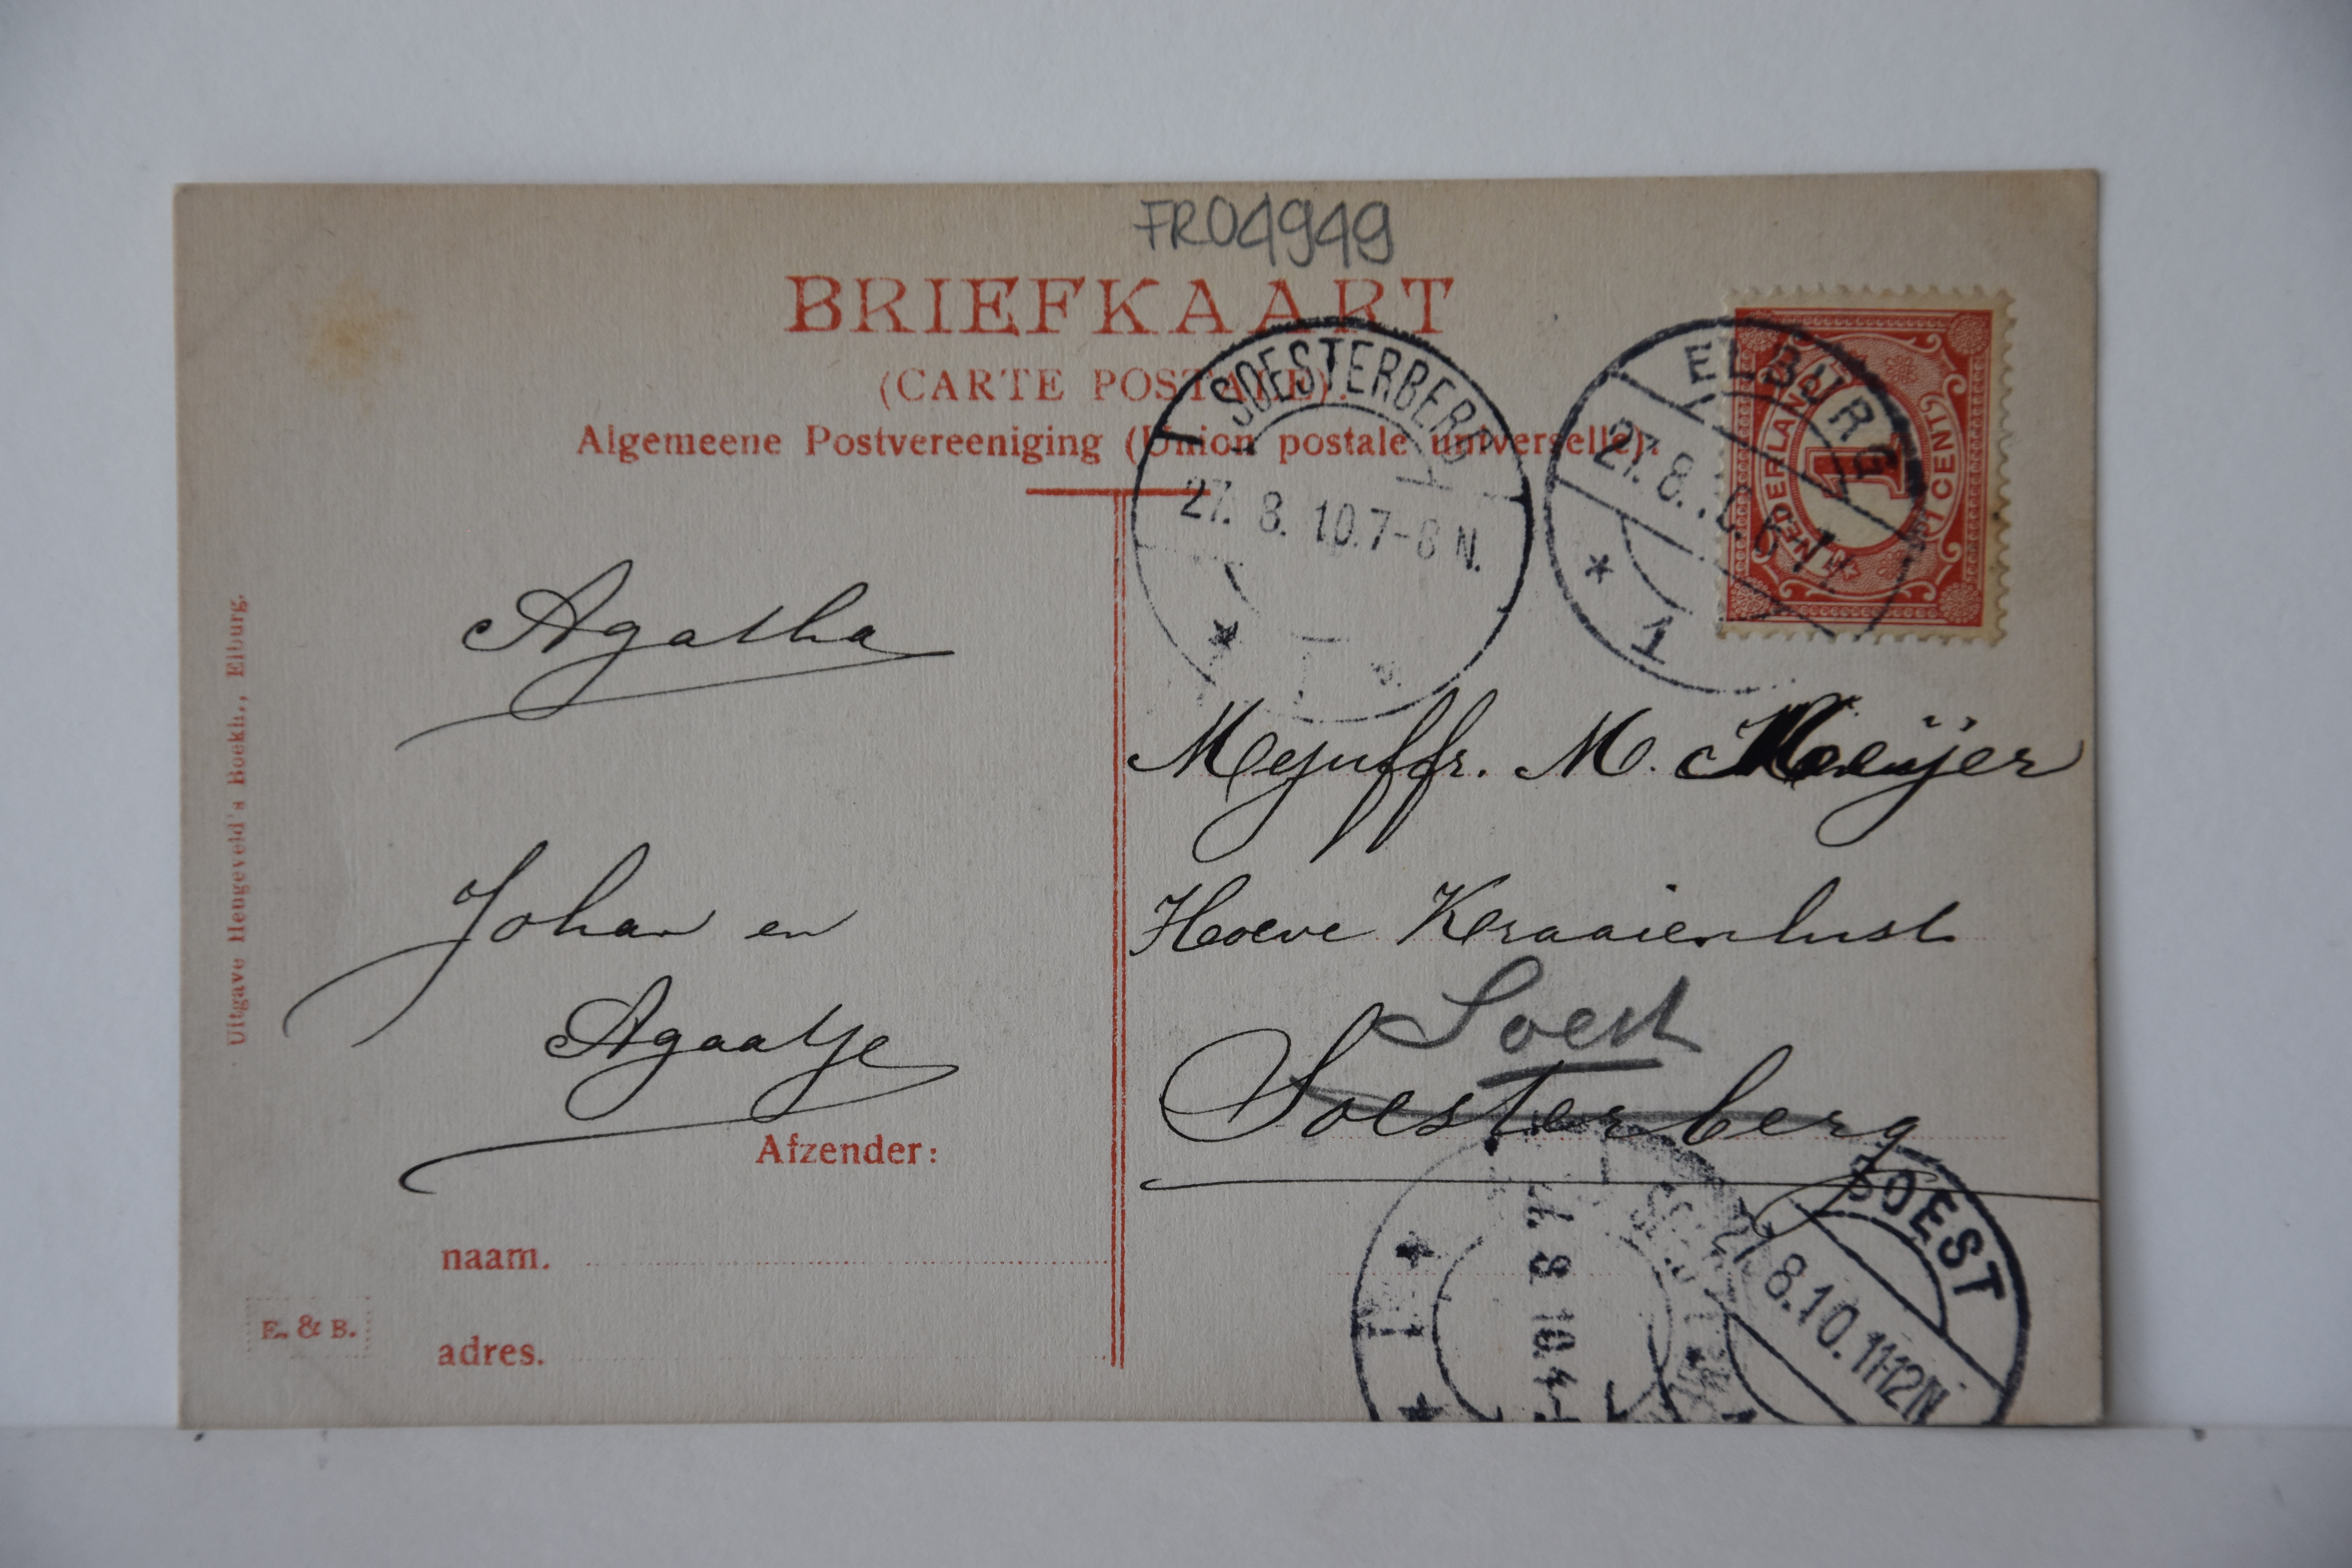 FR04949
BRIEFKAART
(CARTE POSTALE).
Algemeene Postvereeniging (Union postale universelle).
SOESTERBERG
27. 8. 10. 7-8 N.
ELBURG
27. 8.
1
NEDERLAND
1
1 CENT
Agatha
Johan en
Agaatje
Mejuffr. M. Meijer
Hoeve Kraaienlust
Soest
Soesterberg
Afzender:
naam.
adres.
Uitgave Hengeveld's Boekh., Elburg.
E. & B.
8 10.
SOEST
8.10. 11-12N